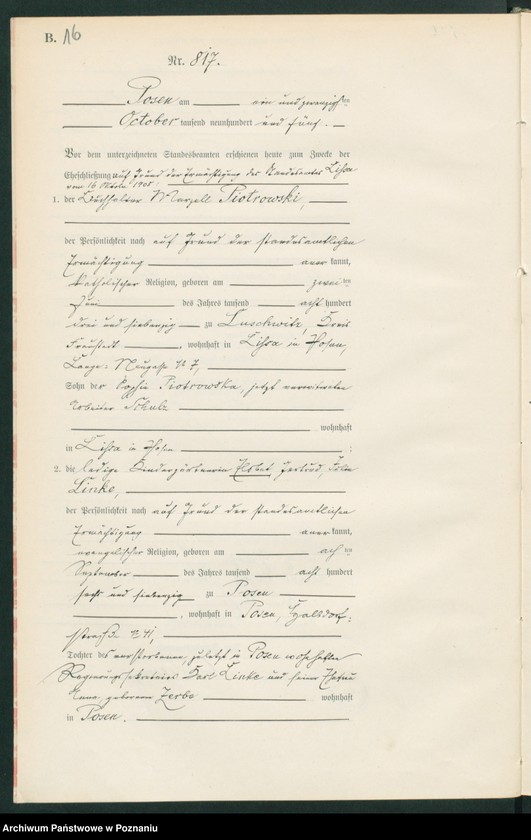 B. 16
Nr. 817.
Posen am ein und zwanzigsten
October tausend neunhundert und fünf.
Vor dem unterzeichneten Standesbeamten erschienen heute zum Zwecke der
Eheschließung auf Grund der Ermächtigung des Standesamtes Lissa
vom 16 Oktober 1905:
1. der Buchhalter Marzell Piotrowski,
der Persönlichkeit nach auf Grund der standesamtlichen
Ermächtigung anerkannt,
katholischer Religion, geboren am zweiten
Juni des Jahres tausend acht hundert
drei und siebenzig zu Luschwitz, Kreis
Fraustadt, wohnhaft in Lissa in Posen,
Lange Neugasse No 7,
Sohn der Sophie Piotrowska, jetzt verwitweten
Arbeiter Schulz
wohnhaft
in Lissa in Posen;
2. die ledige Kindergärtnerin Elsbet, Gertrud,
Linke,
der Persönlichkeit nach auf Grund der standesamtlichen
Ermächtigung anerkannt,
evangelischer Religion, geboren am achten
September des Jahres tausend acht hundert
sechs und siebenzig zu Posen
, wohnhaft in Posen,
straße No 41,
Tochter des verstorbenen, zuletzt in Posen wohnhaften
Regierungssekretairs Karl Linke und seiner Ehefrau
Anna geborenen Zerbe wohnhaft
in Posen.
Archiwum Państwowe w Poznaniu